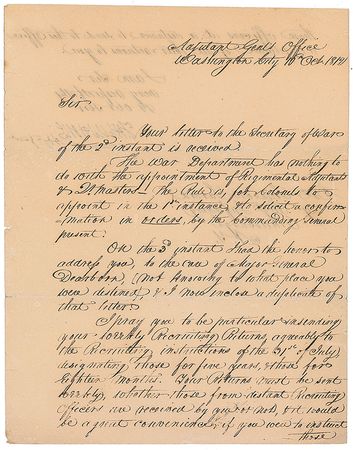 Adjutant Genl's Office
Washington City 10th Oct. 1812
Sir,
Your letter to the Secretary of War
of the 2d instant is received.
The War Department has nothing to
do with the appointment of Regimental Adjutants
& Qr Masters – the Rule is, for Colonels to
appoint in the 1st instance & to solicit a confir-
mation in orders, by the Commanding General
present.
On the 3d instant I had the honor to
address you, to the care of Major General
Dearborn, (not knowing to what place you
were destined) & I now inclose a duplicate of
that letter.
I pray you to be particular in sending
your weekly Recruiting Returns, agreeably to
the Recruiting instructions of the 31st of July,
designating those for five years, & those for
Eighteen months. Your Returns must be sent
weekly, whether those from distant Recruiting
Officers are received by you or not, & it would
be a great convenience, if you were to instruct
those